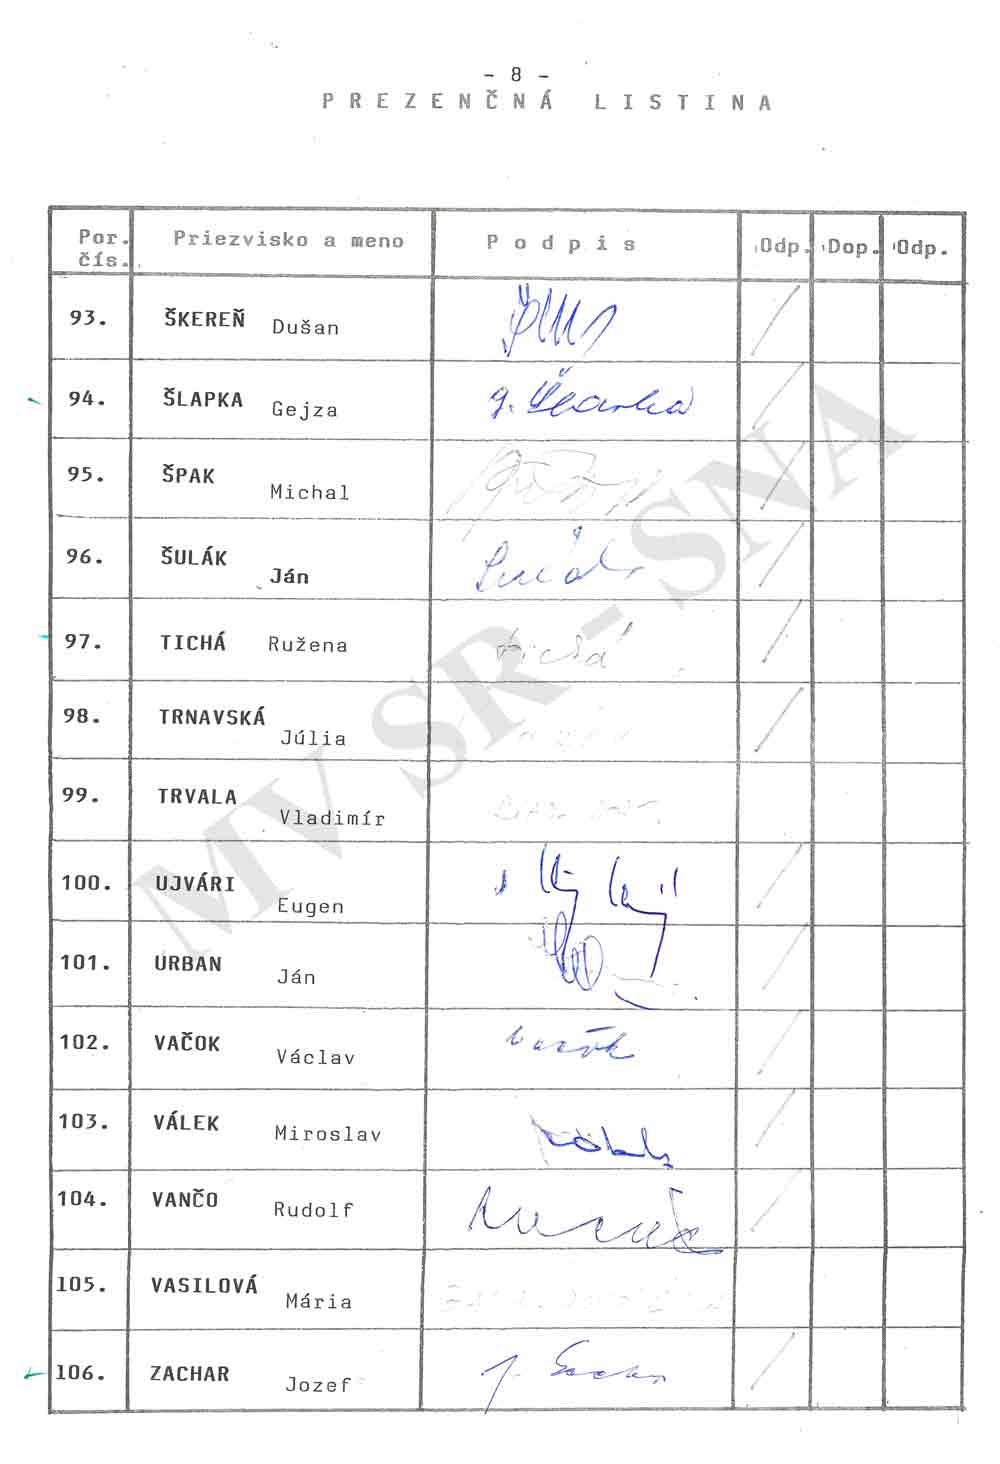 - 8 -
PREZENČNÁ LISTINA
Por. čís. Priezvisko a meno Podpis Odp. Dop. Odp.
93. ŠKEREŇ Dušan
94. ŠLAPKA Gejza
95. ŠPAK Michal
96. ŠULÁK Ján
97. TICHÁ Ružena Tichá
98. TRNAVSKÁ Júlia
99. TRVALA Vladimír
100. UJVÁRI Eugen
101. URBAN Ján
102. VAČOK Václav
103. VÁLEK Miroslav
104. VANČO Rudolf
105. VASILOVÁ Mária
106. ZACHAR Jozef
MV SR - SNA